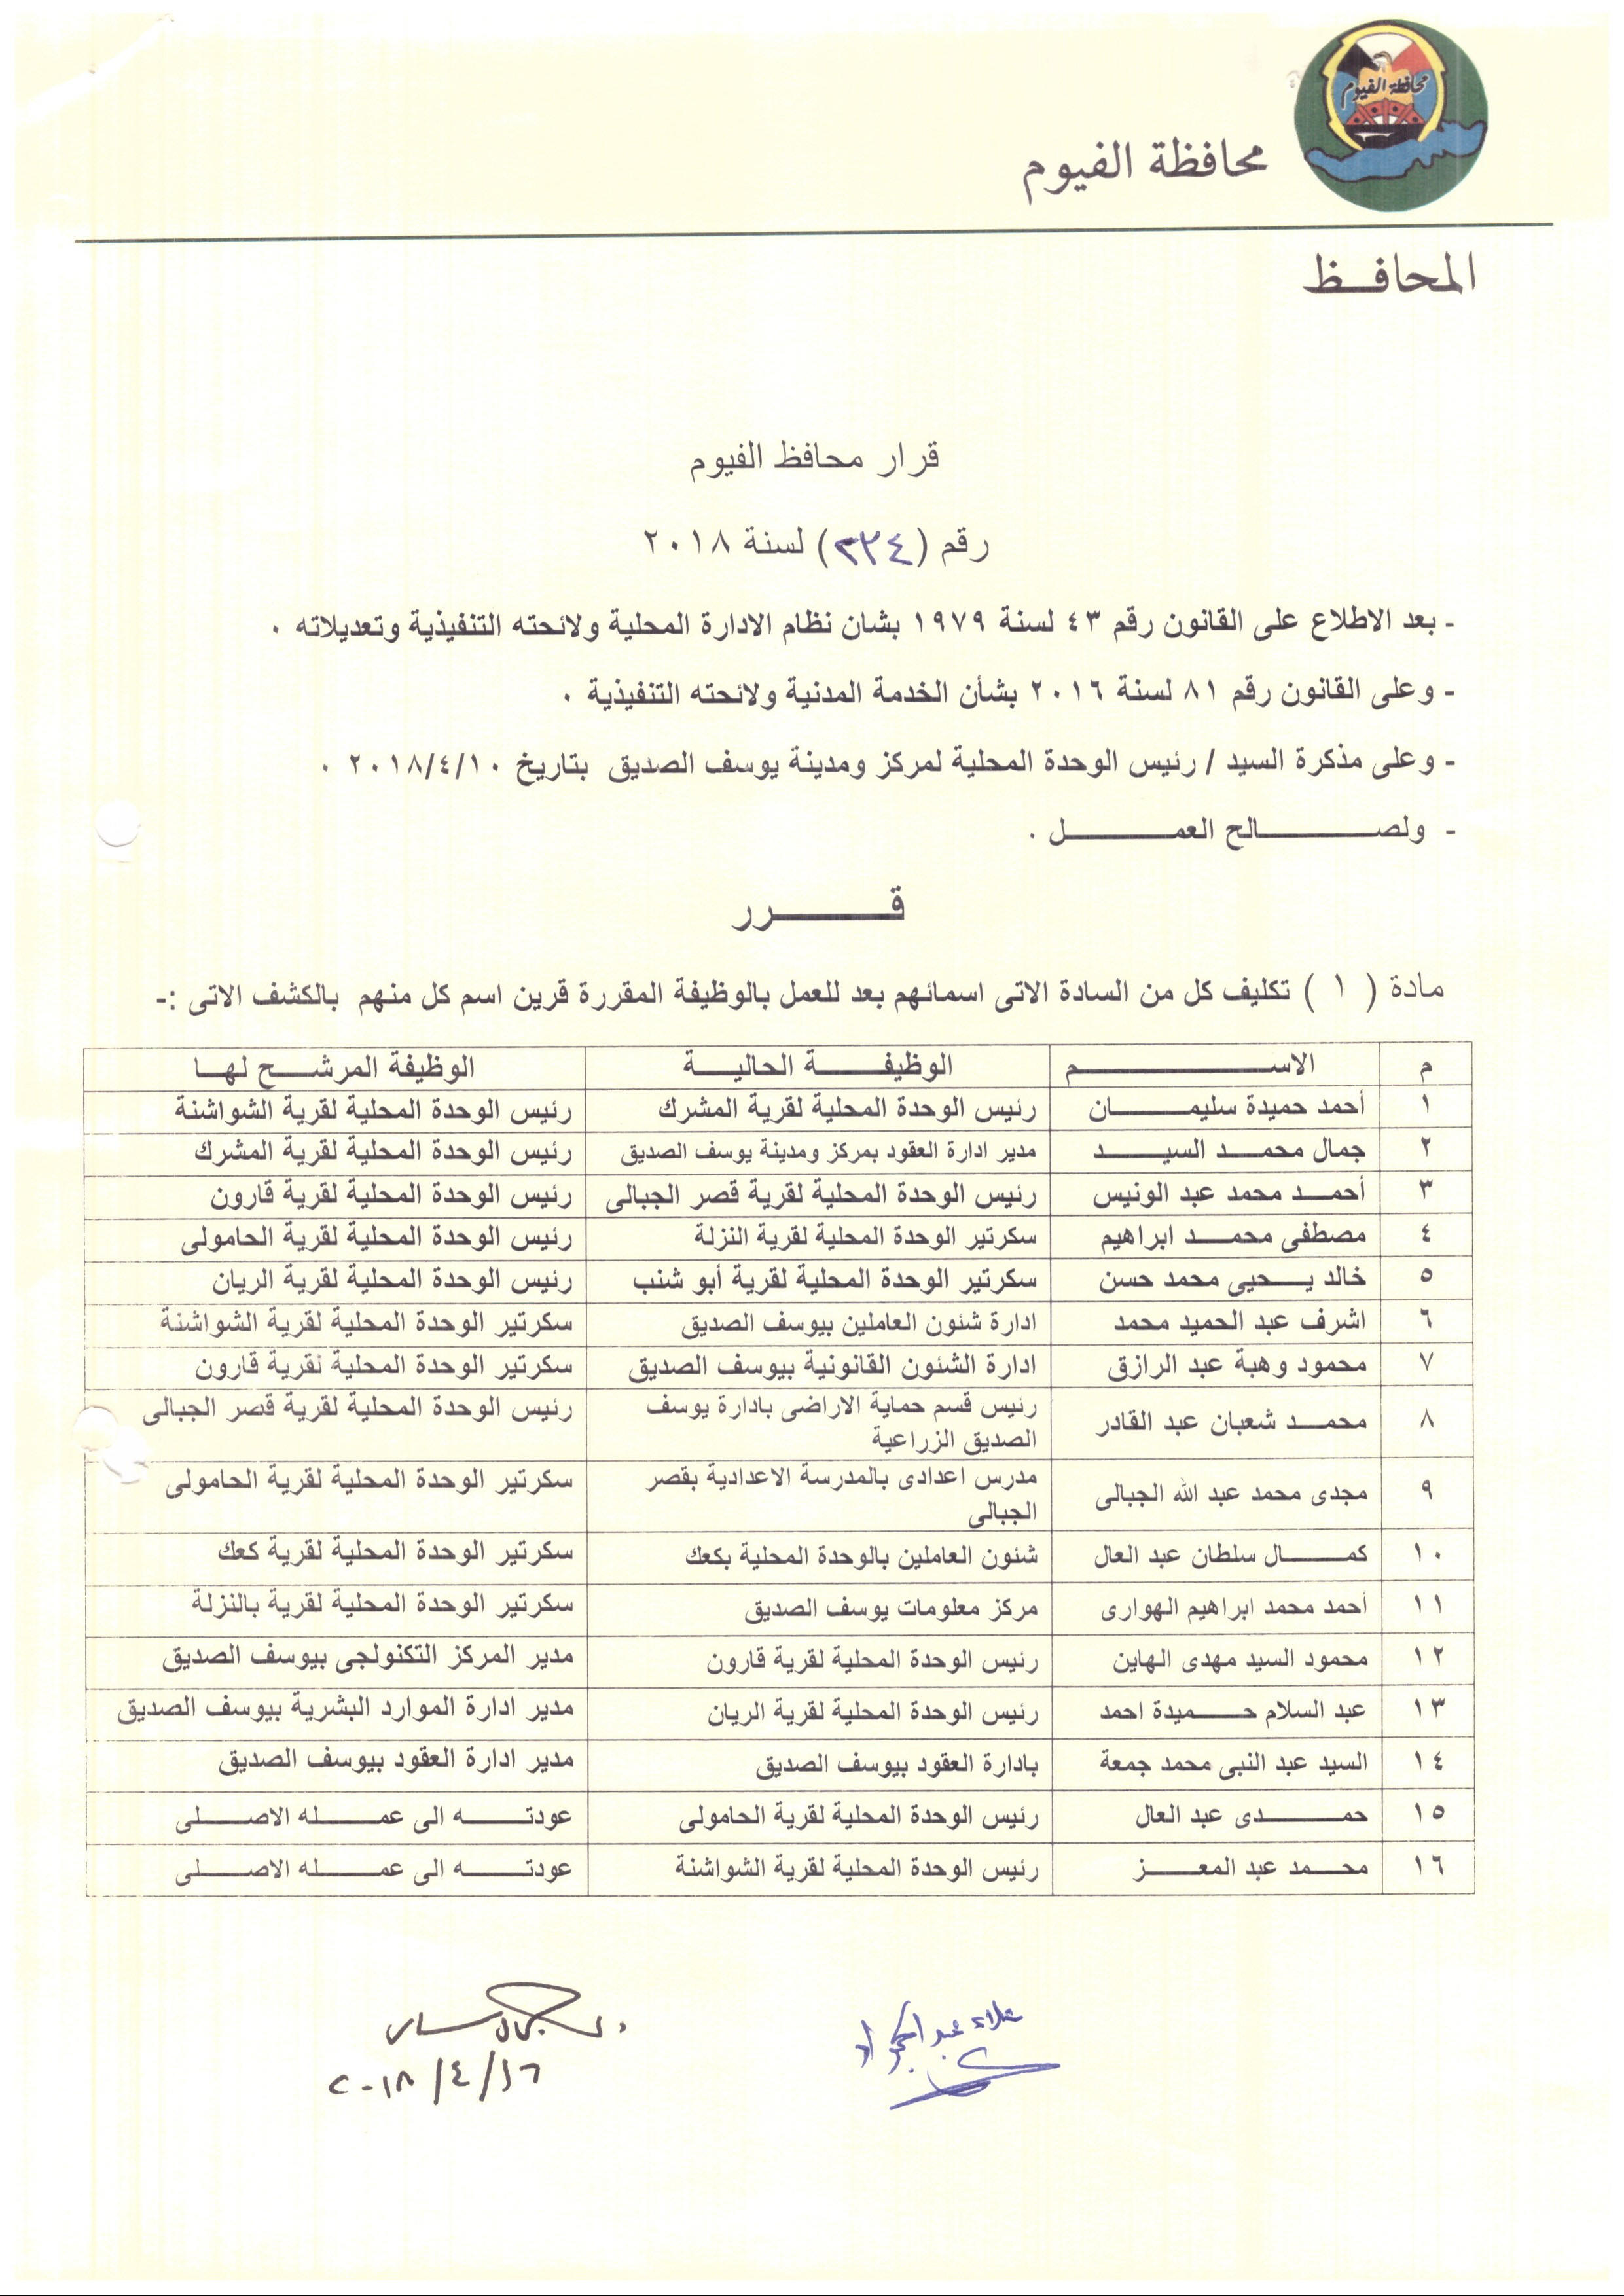 محافظة الفيوم
محافظة الفيوم
المحافظ
قرار محافظ الفيوم
رقم (٢٣٤) لسنة ٢٠١٨
- بعد الاطلاع على القانون رقم ٤٣ لسنة ١٩٧٩ بشان نظام الادارة المحلية ولائحته التنفيذية وتعديلاته .
- وعلى القانون رقم ٨١ لسنة ٢٠١٦ بشأن الخدمة المدنية ولائحته التنفيذية .
- وعلى مذكرة السيد / رئيس الوحدة المحلية لمركز ومدينة يوسف الصديق بتاريخ ٢٠١٨/٤/١٠ .
- ولصالح العمل .
قرر
مادة ( ١ ) تكليف كل من السادة الاتى اسمائهم بعد للعمل بالوظيفة المقررة قرين اسم كل منهم بالكشف الاتى :-
م الاسم الوظيفة الحالية الوظيفة المرشح لها
١ أحمد حميدة سليمان رئيس الوحدة المحلية لقرية المشرك رئيس الوحدة المحلية لقرية الشواشنة
٢ جمال محمد السيد مدير ادارة العقود بمركز ومدينة يوسف الصديق رئيس الوحدة المحلية لقرية المشرك
٣ أحمد محمد عبد الونيس رئيس الوحدة المحلية لقرية قصر الجبالى رئيس الوحدة المحلية لقرية قارون
٤ مصطفى محمد ابراهيم سكرتير الوحدة المحلية لقرية النزلة رئيس الوحدة المحلية لقرية الحامولى
٥ خالد يحيى محمد حسن سكرتير الوحدة المحلية لقرية أبو شنب رئيس الوحدة المحلية لقرية الريان
٦ اشرف عبد الحميد محمد ادارة شئون العاملين بيوسف الصديق سكرتير الوحدة المحلية لقرية الشواشنة
٧ محمود وهبة عبد الرازق ادارة الشئون القانونية بيوسف الصديق سكرتير الوحدة المحلية لقرية قارون
٨ محمد شعبان عبد القادر رئيس قسم حماية الاراضى بادارة يوسف رئيس الوحدة المحلية لقرية قصر الجبالى
الصديق الزراعية
٩ مجدى محمد عبد الله الجبالى مدرس اعدادى بالمدرسة الاعدادية بقصر سكرتير الوحدة المحلية لقرية الحامولى
الجبالى
١٠ كمال سلطان عبد العال شئون العاملين بالوحدة المحلية بكعك سكرتير الوحدة المحلية لقرية كعك
١١ أحمد محمد ابراهيم الهوارى مركز معلومات يوسف الصديق سكرتير الوحدة المحلية لقرية بالنزلة
١٢ محمود السيد مهدى الهاين رئيس الوحدة المحلية لقرية قارون مدير المركز التكنولجى بيوسف الصديق
١٣ عبد السلام حميدة احمد رئيس الوحدة المحلية لقرية الريان مدير ادارة الموارد البشرية بيوسف الصديق
١٤ السيد عبد النبى محمد جمعة بادارة العقود بيوسف الصديق مدير ادارة العقود بيوسف الصديق
١٥ حمدى عبد العال رئيس الوحدة المحلية لقرية الحامولى عودته الى عمله الاصلى
١٦ محمد عبد المعز رئيس الوحدة المحلية لقرية الشواشنة عودته الى عمله الاصلى
علاء عبد الجواد
٢٠١٨/٤/١٦